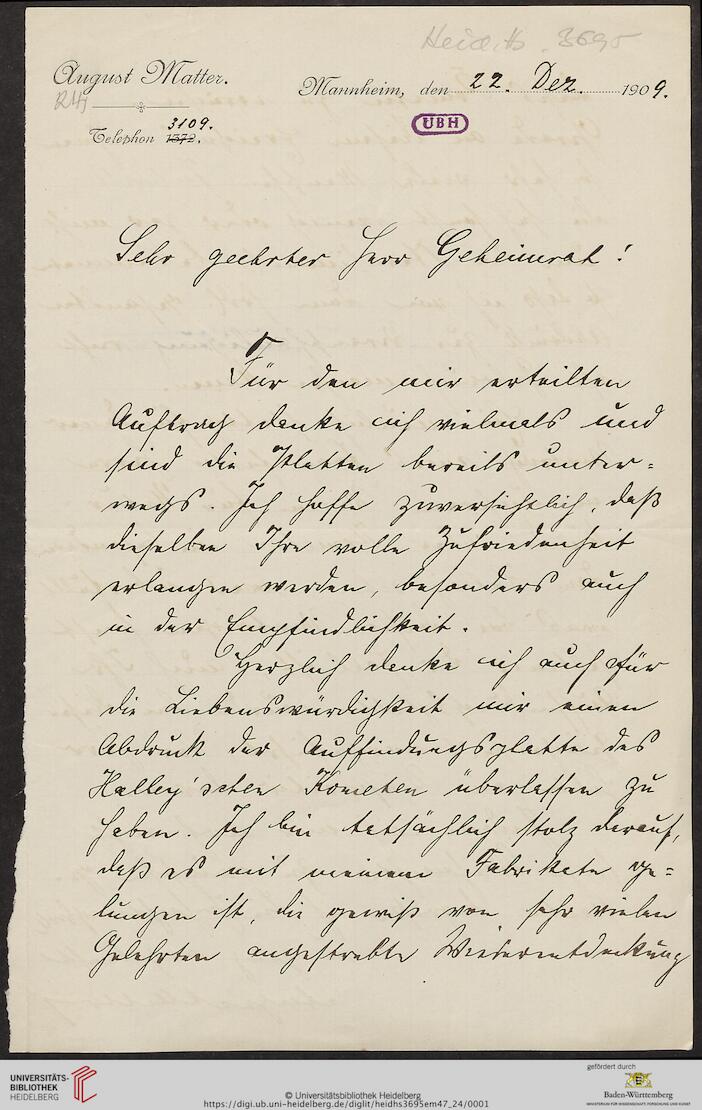 Heid. Hs. 3695
August Matter.
Mannheim, den 22. Dez. 1909.
3109.
Telephon 1372.
UBH
Sehr geehrter Herr Geheimrat!
Für den mir erteilten
Auftrag danke ich vielmals und
sind die Platten bereits unter-
wegs. Ich hoffe zuversichtlich, daß
dieselben Ihre volle Zufriedenheit
erlangen werden, besonders auch
in der Empfindlichkeit.
Herzlich danke ich auch für
die Liebenswürdigkeit mir einen
Abdruck der Auffindungsplatte des
Halley'schen Kometen überlassen zu
haben. Ich bin tatsächlich stolz darauf,
daß es mit meinem Fabrikate ge-
lungen ist, die gewiß von sehr vielen
Gelehrten angestrebte Wiederentdeckung
UNIVERSITÄTS-
BIBLIOTHEK
HEIDELBERG
© Universitätsbibliothek Heidelberg
https://digi.ub.uni-heidelberg.de/diglit/heidhs3695em47_24/0001
gefördert durch
Baden-Württemberg
MINISTERIUM FÜR WISSENSCHAFT, FORSCHUNG UND KUNST